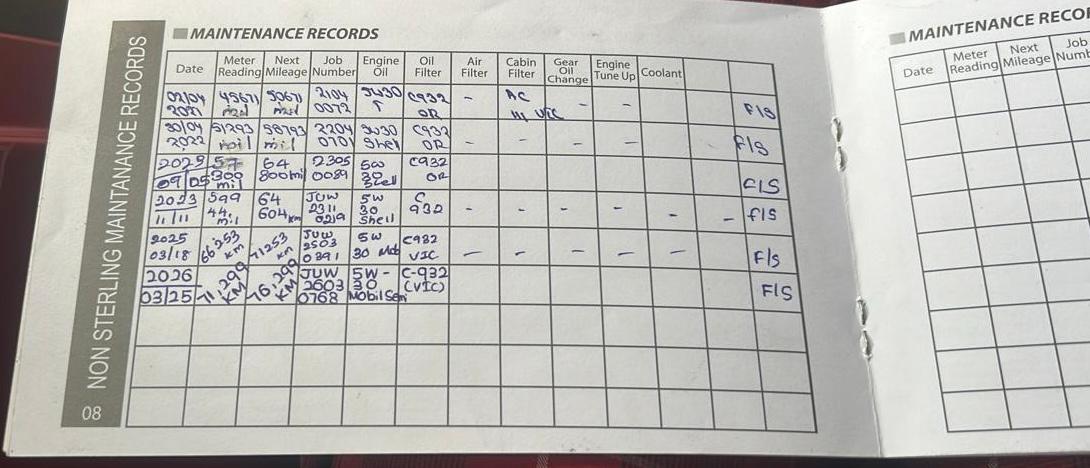 NON STERLING MAINTANANCE RECORDS
08
MAINTENANCE RECORDS
Date Meter Reading Next Mileage Job Number Engine Oil Oil Filter Air Filter Cabin Filter Gear Oil Change Engine Tune Up Coolant
02/04 2021 45671 mil 50671 mil 2104 0072 5W30 C932 OR - AC - - F/S
30/04 2022 51293 mil 58793 mil 2204 0701 5W30 Shell C932 OR - - - - F/S
2023 09/05 57 300 mil 64 800 mil 2305 0089 5W 30 Shell C932 OR F/S
2023 11/11 599 44. mil 64 604 km JUW 2311 0219 5W 30 Shell C 932 - - - - - - F/S
2025 03/18 66,253 km 71253 km JUW 2503 0391 5W 30 Mob C932 VIC - - - - - F/S
2026 03/25 71,299 KM 76,299 KM JUW 2603 0768 5W-30 Mobil Semi C-932 (VIC) F/S
MAINTENANCE RECO
Date Meter Reading Next Mileage Job